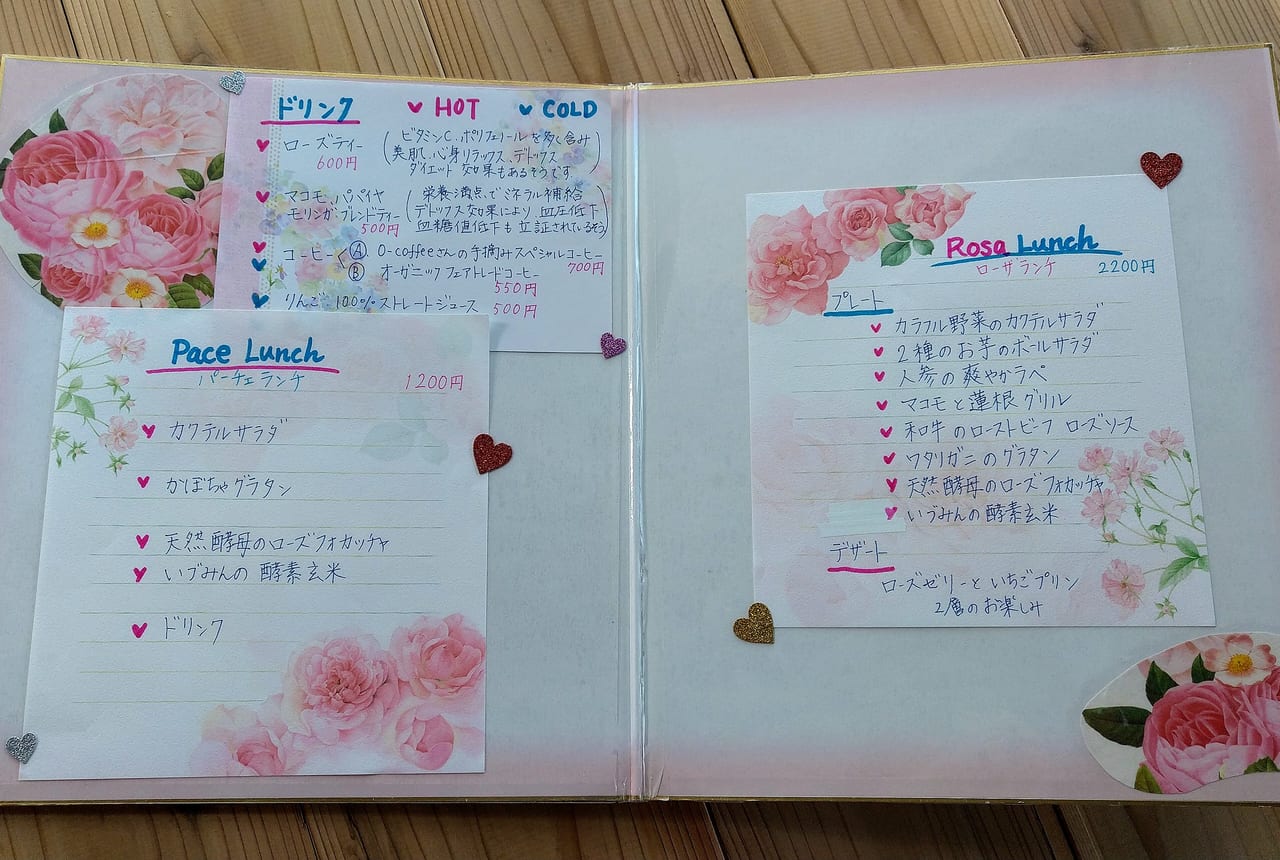 ドリンク HOT COLD
ローズティー
600円
(ビタミンC、ポリフェノールを多く含み
美肌、心身リラックス、デトックス
ダイエット効果もあるそうです)
マコモ、パパイヤ
モリンガ・ブレンドティー
500円
(栄養満点、でミネラル補給
デトックス効果により血圧低下
血糖値低下も立証されているそう)
コーヒー
Ⓐ O-coffeeさんの手摘みスペシャルコーヒー
700円
Ⓑ オーガニックフェアトレードコーヒー
550円
りんご 100% ストレートジュース 500円
Pace Lunch
パーチェランチ 1200円
カクテルサラダ
かぼちゃグラタン
天然酵母のローズフォカッチャ
いづみんの酵素玄米
ドリンク
Rosa Lunch
ローザランチ 2200円
プレート
カラフル野菜のカクテルサラダ
2種のお芋のボールサラダ
人参の爽やかラペ
マコモと蓮根グリル
和牛のローストビーフ ローズソース
ワタリガニのグラタン
天然酵母のローズフォカッチャ
いづみんの酵素玄米
デザート
ローズゼリーといちごプリン
2層のお楽しみ